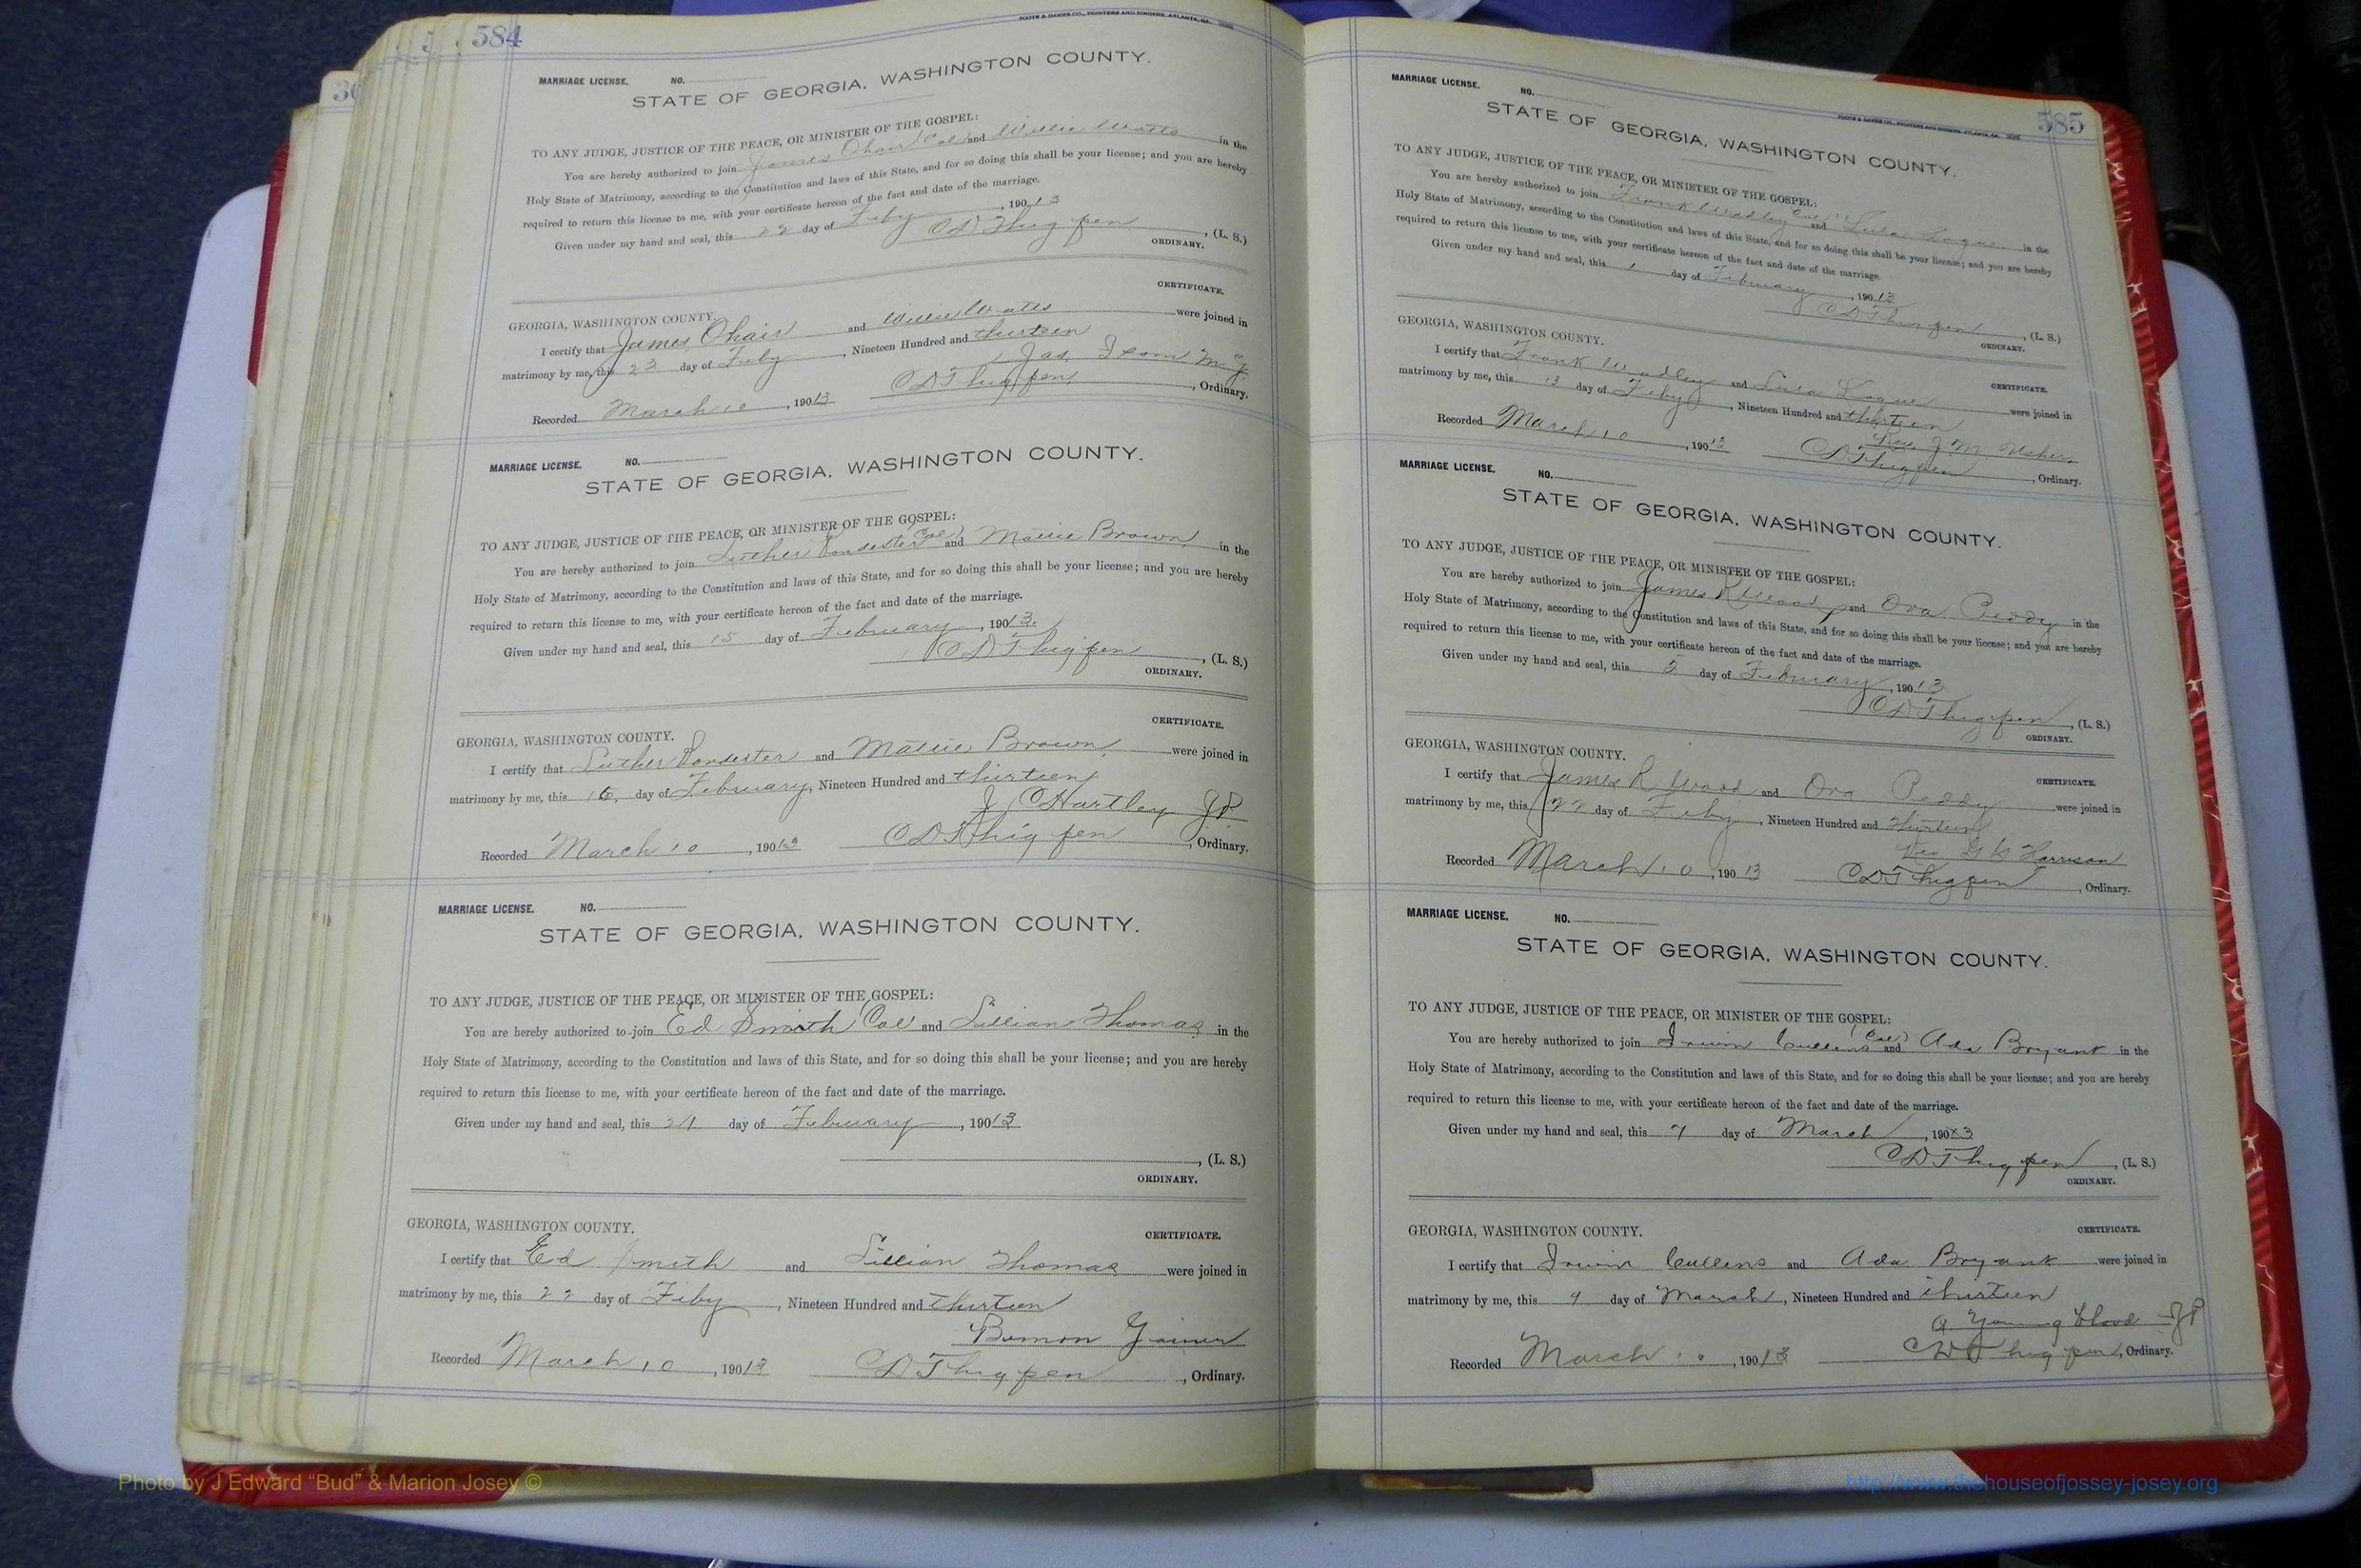 584
FOOTE & DAVIES CO., PRINTERS AND BINDERS, ATLANTA, GA.
MARRIAGE LICENSE. NO.
STATE OF GEORGIA, WASHINGTON COUNTY.
TO ANY JUDGE, JUSTICE OF THE PEACE, OR MINISTER OF THE GOSPEL:
You are hereby authorized to join James Ohair Col and Willie Watts in the
Holy State of Matrimony, according to the Constitution and laws of this State, and for so doing this shall be your license; and you are hereby
required to return this license to me, with your certificate hereon of the fact and date of the marriage.
Given under my hand and seal, this 22 day of Feby, 190 13
CD Thigpen, (L. S.)
ORDINARY.
CERTIFICATE.
GEORGIA, WASHINGTON COUNTY.
I certify that James Ohair and Willie Watts were joined in
matrimony by me, this 23 day of Feby, Nineteen Hundred and thirteen
Jas.
Recorded March 10, 190 13 CD Thigpen, Ordinary.
MARRIAGE LICENSE. NO.
STATE OF GEORGIA, WASHINGTON COUNTY.
TO ANY JUDGE, JUSTICE OF THE PEACE, OR MINISTER OF THE GOSPEL:
You are hereby authorized to join Luther (Col) and Mattie Brown in the
Holy State of Matrimony, according to the Constitution and laws of this State, and for so doing this shall be your license; and you are hereby
required to return this license to me, with your certificate hereon of the fact and date of the marriage.
Given under my hand and seal, this 15 day of February, 190 13.
CD Thigpen, (L. S.)
ORDINARY.
CERTIFICATE.
GEORGIA, WASHINGTON COUNTY.
I certify that Luther and Mattie Brown were joined in
matrimony by me, this 16, day of February, Nineteen Hundred and thirteen
J C Hartley JP
Recorded March 10, 190 13 CD Thigpen, Ordinary.
MARRIAGE LICENSE. NO.
STATE OF GEORGIA, WASHINGTON COUNTY.
TO ANY JUDGE, JUSTICE OF THE PEACE, OR MINISTER OF THE GOSPEL:
You are hereby authorized to join Ed Smith Col and Lillian Thomas in the
Holy State of Matrimony, according to the Constitution and laws of this State, and for so doing this shall be your license; and you are hereby
required to return this license to me, with your certificate hereon of the fact and date of the marriage.
Given under my hand and seal, this 21 day of February, 190 13
, (L. S.)
ORDINARY.
CERTIFICATE.
GEORGIA, WASHINGTON COUNTY.
I certify that Ed Smith and Lillian Thomas were joined in
matrimony by me, this 22 day of Feby, Nineteen Hundred and thirteen
Gainer
Recorded March 10, 190 13 CD Thigpen, Ordinary.
585
FOOTE & DAVIES CO., PRINTERS AND BINDERS, ATLANTA, GA.
MARRIAGE LICENSE. NO.
STATE OF GEORGIA, WASHINGTON COUNTY.
TO ANY JUDGE, JUSTICE OF THE PEACE, OR MINISTER OF THE GOSPEL:
You are hereby authorized to join Frank Wadley Col and Lula Logue in the
Holy State of Matrimony, according to the Constitution and laws of this State, and for so doing this shall be your license; and you are hereby
required to return this license to me, with your certificate hereon of the fact and date of the marriage.
Given under my hand and seal, this 1 day of February, 190 13
CD Thigpen, (L. S.)
ORDINARY.
GEORGIA, WASHINGTON COUNTY.
CERTIFICATE.
I certify that Frank Wadley and Lula Logue were joined in
matrimony by me, this 3 day of Feby, Nineteen Hundred and thirteen
Rev J M Usher
Recorded March 10, 190 13 CD Thigpen, Ordinary.
MARRIAGE LICENSE. NO.
STATE OF GEORGIA, WASHINGTON COUNTY.
TO ANY JUDGE, JUSTICE OF THE PEACE, OR MINISTER OF THE GOSPEL:
You are hereby authorized to join James R Wood and Ora Peddy in the
Holy State of Matrimony, according to the Constitution and laws of this State, and for so doing this shall be your license; and you are hereby
required to return this license to me, with your certificate hereon of the fact and date of the marriage.
Given under my hand and seal, this 5 day of February, 190 13
CD Thigpen, (L. S.)
ORDINARY.
GEORGIA, WASHINGTON COUNTY.
CERTIFICATE.
I certify that James R Wood and Ora Peddy were joined in
matrimony by me, this 22 day of Feby, Nineteen Hundred and thirteen
Harrison
Recorded March 10, 190 13 CD Thigpen, Ordinary.
MARRIAGE LICENSE. NO.
STATE OF GEORGIA, WASHINGTON COUNTY.
TO ANY JUDGE, JUSTICE OF THE PEACE, OR MINISTER OF THE GOSPEL:
You are hereby authorized to join Irwin Cullens (Col) and Ada Bryant in the
Holy State of Matrimony, according to the Constitution and laws of this State, and for so doing this shall be your license; and you are hereby
required to return this license to me, with your certificate hereon of the fact and date of the marriage.
Given under my hand and seal, this 7 day of March, 190 13
CD Thigpen, (L. S.)
ORDINARY.
CERTIFICATE.
GEORGIA, WASHINGTON COUNTY.
I certify that Irwin Cullens and Ada Bryant were joined in
matrimony by me, this 9 day of March, Nineteen Hundred and thirteen
A Youngblood JP
Recorded March 10, 190 13 CD Thigpen, Ordinary.
Photo by J Edward “Bud” & Marion Josey ©
http://www.thehouseofjossey-josey.org